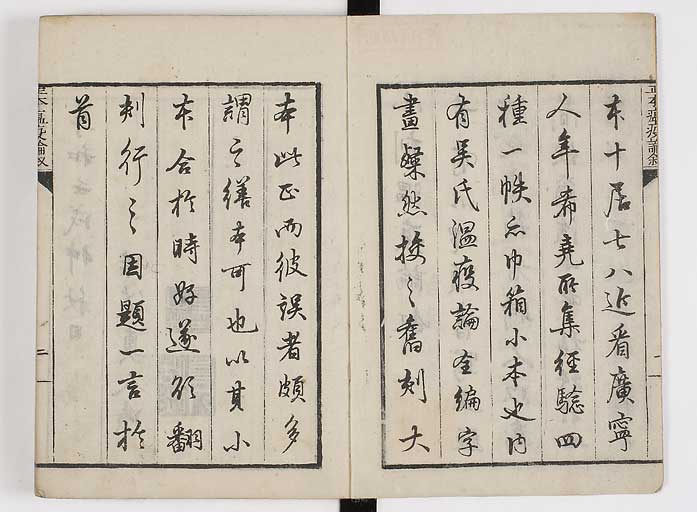 本十居七八近看廣寧
人年希堯所集經驗四
種一帙亦巾箱小本也內
有吳氏溫疫論全編字
畫燦然挍之舊刻大
本此正而彼誤者頗多
謂之繕本可也以其小
本合於時好遂欲翻
刻行之因題一言於
首